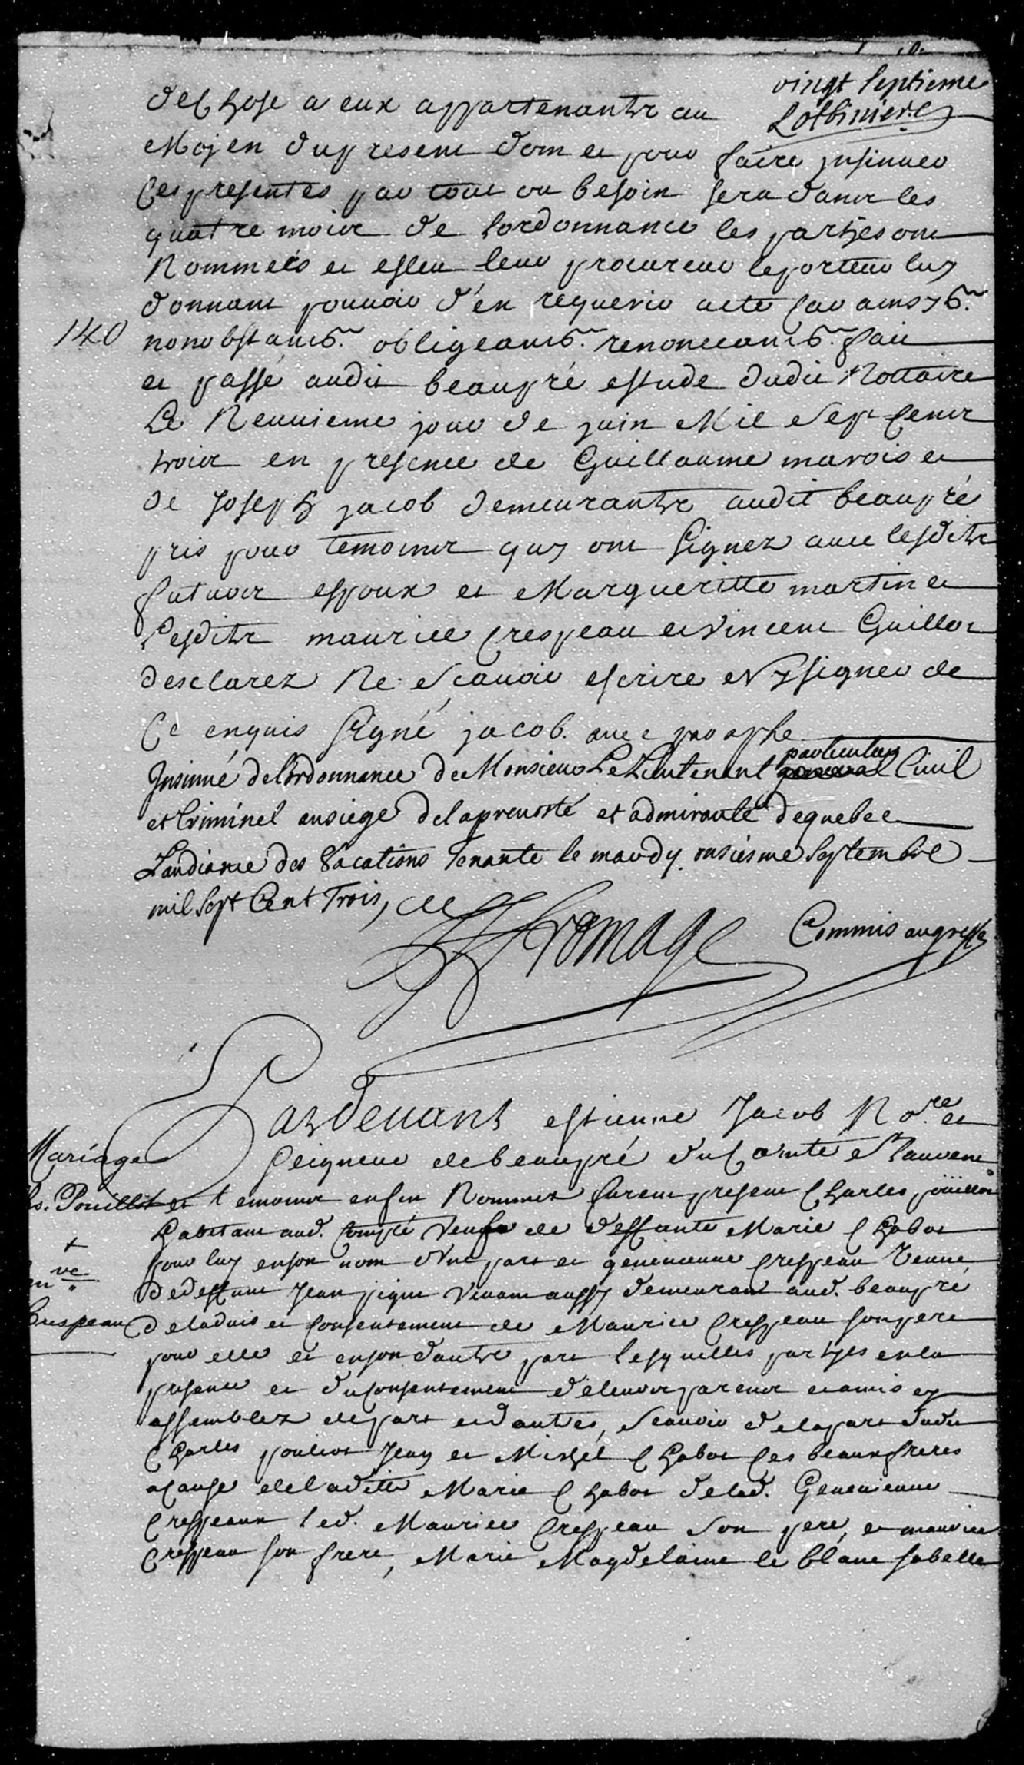 vingt septieme
Lotbiniere
de Chose a eux appartenante au
Moyen du present don et pour faire insinuer
Ces presentes par tout ou besoin sera dans les
quatre mois de lordonnance les partyes ont
Nommeés et esleu leur procureur le porteur luy
donnant pouvoir d'en requerir acte Car ainsy &c.
140
nonobstant &c. obligeant &c. renonceant &c. fait
et passé audit beaupré estude dudit Nottaire
Le Neuuieme jour de juin Mil Sept Cent
trois en presence de Guillaume marois et
de Joseph jacob demeurants audit beaupré
pris pour temoins quy ont Signez auec lesdits
futurs espoux et Margueritte martin et
Lesdits maurice Crespeau et Vincent Guillot
desclarez Ne Scauoir escrire ny signer de
Ce enquis Signé jacob. auec paraphe
Insinué de l'ordonnance de Monsieur Le Lieutenant general particulier Ciuil
et Criminel au siege de la preuosté et admirauté de quebec
L'audience des Vacations Tenante le mardy onsiesme Septembre
mil Sept Cent Trois,
Fromage
Commis au greffe
Pardeuant estienne Jacob No.re et
Mariage
Seigneur de beaupré du Comté St Laurens
Ch. Pouilliot
et temoins enfin Nommez furent present Charles pouilliot
habitant aud. Comté Veuf de deffunte Marie Chabot
+
pour luy en son nom d'Une part et geneuieue Crespeau Veuue
ve
de deffunt Jean pigni Viuant aussy demeurant aud. beaupré
Crespeau
de ladvis et Consentement de Maurice Crespeau son pere
pour elle et en son d'autre part Lesquelles partyes en la
presence et du Consentement de leurs parents et amis cy
assemblez de part et d'autre, Scauoir de la part dudit
Charles pouliot Jean et Michel Chabot Ses beaux freres
a Cause de laditte Marie Chabot de lad. Geneuieue
Crespeau led. Maurice Crespeau Son pere, et maurice
Crespeau son frere, Marie Magdelaine le blanc sa belle